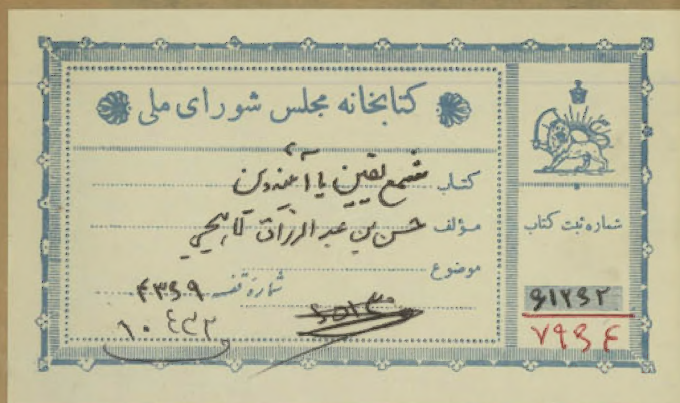 کتابخانه مجلس شورای ملی
کتاب شمع یقین یا آئینه دین
مؤلف حسن بن عبدالرزاق لاهیجی
موضوع
شماره قفسه ۴۳۶۹
۱۰۴۳۲
شماره ثبت کتاب
۶۱۲۶۲
۷۹۶۴